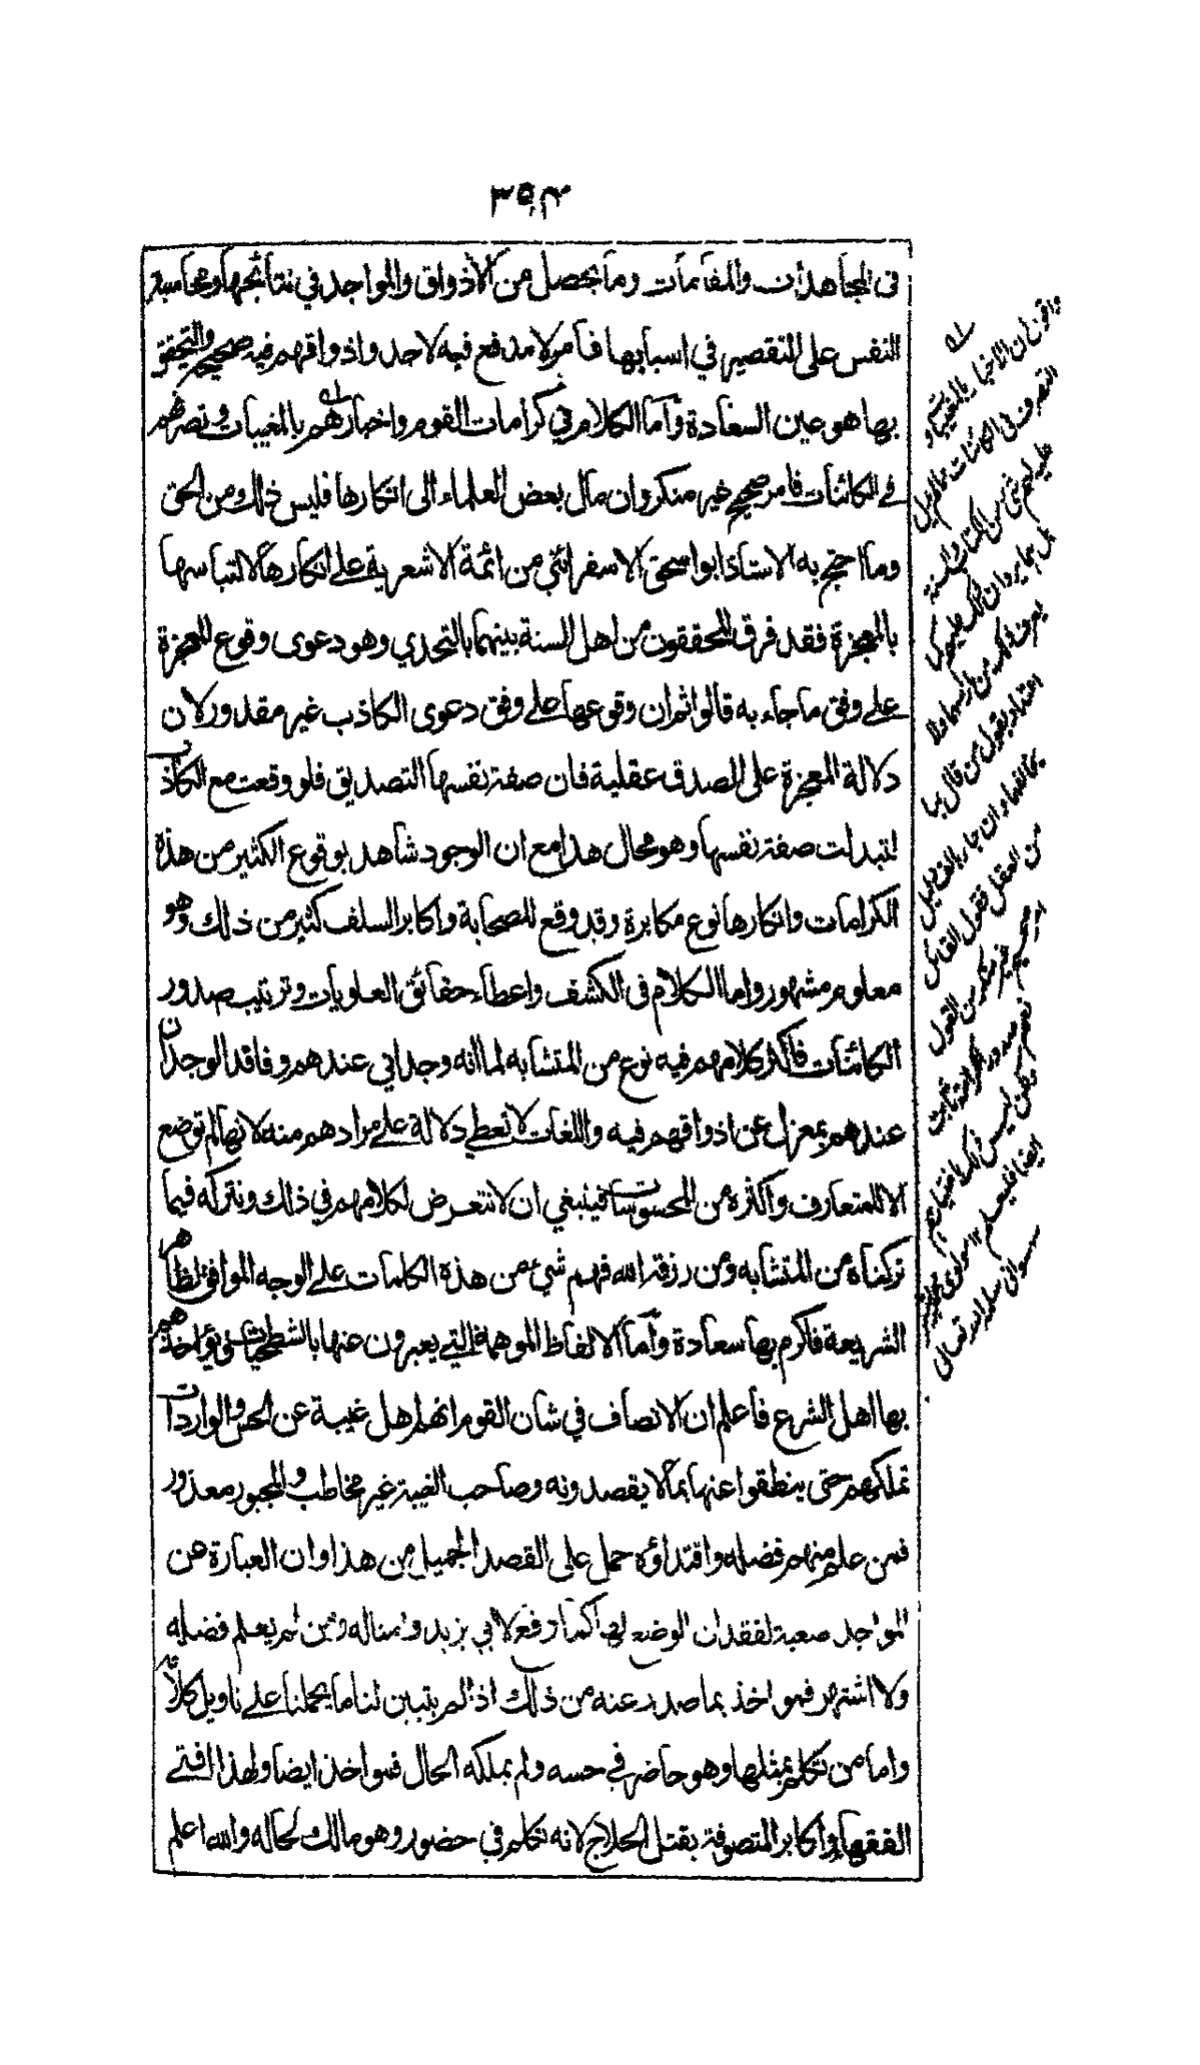 ٣٥٤
فى المجاهدات والمقامات وما يحصل من الأذواق والمواجد في نتائجها ومحاسبة
النفس على التقصير في اسبابها فأمر لا مدفع فيه لاحد واذواقهم فيه صحيحة والتحقق
بها هو عين السعادة وأما الكلام في كرامات القوم واخبارهم بالمغيبات وتصرفهم
في الكائنات فامر صحيح غير منكر وان مال بعض العلماء الى انكارها فليس ذلك من الحق
وما احتج به الاستاذ ابو اسحق الاسفرائني من ائمة الاشعرية على انكارها لالتباسها
بالمعجزة فقد فرق المحققون من اهل السنة بينهما بالتحدي وهو دعوى وقوع المعجزة
على وفق ما جاء به قالوا ثم ان وقوعها على وفق دعوى الكاذب غير مقدور لان
دلالة المعجزة على الصدق عقلية فان صفة نفسها التصديق فلو وقعت مع الكاذب
لتبدلت صفة نفسها وهو محال هذا مع ان الوجود شاهد بوقوع الكثير من هذه
الكرامات وانكارها نوع مكابرة وقد وقع للصحابة واكابر السلف كثير من ذلك وهو
معلوم مشهور واما الكلام فى الكشف واعطاء حقائق العلويات وترتيب صدور
الكائنات فاكثر كلامهم فيه نوع من المتشابه لما انه وجداني عندهم وفاقد الوجدان
عندهم بمعزل عن اذواقهم فيه واللغات لا تعطي دلالة على مرادهم منه لانها لم توضع
الا للمتعارف واكثره من المحسوسات فينبغي ان لا نتعرض لكلامهم في ذلك ونتركه فيما
تركناه من المتشابه ومن رزقه الله فهم شيء من هذه الكلمات على الوجه الموافق لظاهر
الشريعة فاكرم بها سعادة وأما الالفاظ الموهمة التي يعبرون عنها بالشطحيات ويؤاخذهم
بها اهل الشرع فأعلم ان الانصاف في شان القوم انهم اهل غيبة عن الحس والواردات
تملكهم حتى ينطقوا عنها بما لا يقصدونه وصاحب الغيبة غير مخاطب والمجبور معذور
فمن علم منهم فضله واقتداؤه حمل على القصد الجميل من هذا وان العبارة عن
المواجد صعبة لفقدان الوضع لها كما وقع لابي يزيد وامثاله ومن لم يعلم فضله
ولا اشتهر فهواخذ بما صدر عنه من ذلك اذ لم يتبين لنا ما يحملنا على تاويل كلامه
واما من تكلم بمثلها وهو حاضر في حسه ولم يملكه الحال فمواخذ ايضا ولهذا افتى
الفقهاء واكابر المتصوفة بقتل الحلاج لانه تكلم في حضور وهو مالك لحاله والله اعلم
التصرف فى الكائنات
من الكتاب والسنة
من العقل فقول القائل
صحيح غير منكر من القول
سلمه الله تعالى